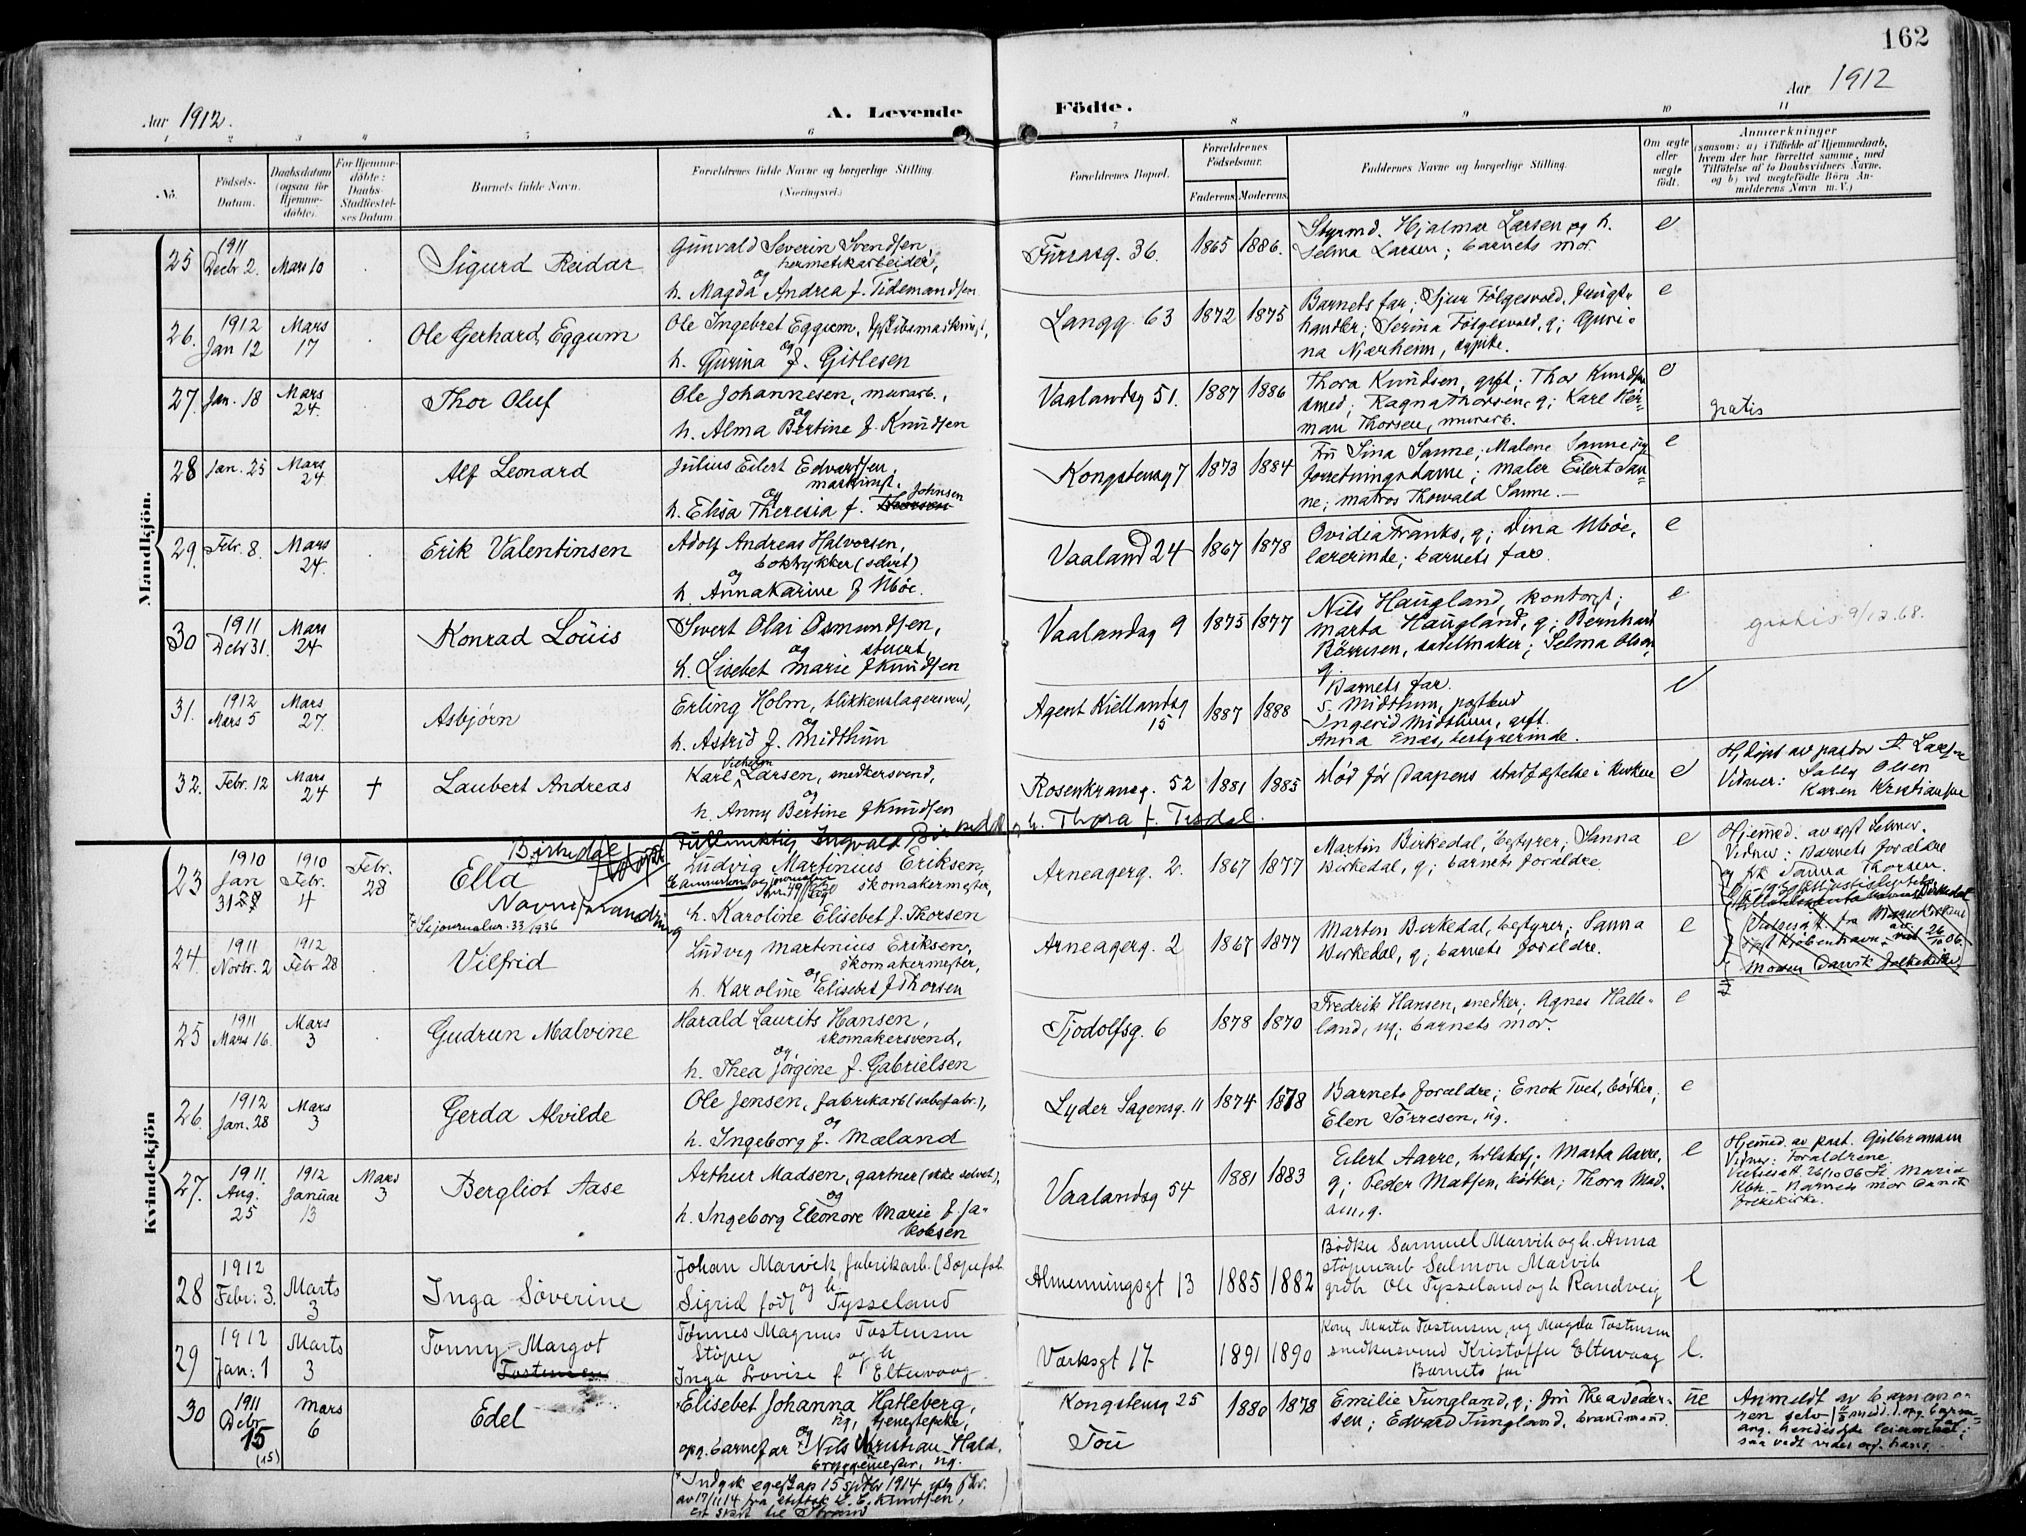 162
Aar 1912.
A. Levende
Födte.
Aar 1912
1 2 3 4 5 6 7 8 9 10 11
No.
Födsels-
Datum.
Daabsdatum
(ogsaa for
Hjemme-
døbte).
For Hjemme-
döbte:
Daabs-
Stadfæstel-
ses Datum.
Barnets fulde Navn.
Forældrenes fulde Navne og borgerlige Stilling.
(Næringsvei.)
Forældrenes Bopæl.
Forældrenes
Födselsaar.
Faderens. Moderens.
Faddernes Navne og borgerlige Stilling.
Om ægte
eller
uægte
födt.
Anmærkninger
(saasom: a) i Tilfælde af Hjemmedaab,
hvem der har forrettet samme, med
Tilföielse af to Daabsvidners Navne,
og b) ved uægtefödte Börn An-
melderens Navn m. V.)
Mandkjön.
25 1911 Decbr 2. Mars 10 Sigurd Reidar
Gunvald Severin Svendsen,
hermetikarbeider,
og
h. Magda Andrea f. Tidemandsen
36. 1865 1886.
Styrmd. Hjalmar Larsen og h.
Selma Larsen; barnets mor. e
26. 1912 Jan 12 Mars 17 Ole Gerhard Eggum
Ole Ingebret Eggum,
og
h. Gurina f. Gitlesen
Langg. 63 1872 1875
Barnets far; Sjur Følgesvold,
handler; Serina Følgesvold, g; Guri-
na Njærheim, e
27. Jan. 18 Mars 24. Thor Oluf
Ole Johannesen, murarb.,
og
h. Alma Bertine f. Knudsen
Vaalandsg 51. 1887 1886
Thora Knudsen, gift; Thor Knudsen
smed; Ragna Thorsen, g; Karl Her-
man Thorsen, murarb. e
gratis
28 Jan. 25 Mars 24 Alf Leonard
Julius Eilert Edvardsen,
maskinist.
og Johnsen
h. Elisa Theresia f.
Kongstensg 7 1873 1884
Fru Sina Sanne; Malene Sanne
forretningsdame; maler Eilert San-
ne; matros Thorvald Sanne. e
29. Febr. 8. Mars 24. Erik Valentinsen
Adolf Andreas Halvorsen,
boktrykker (selvst)
og
h. Anna Karine f Ubøe.
Vaaland 24 1867 1878
Ovidia Franks, g; Dina Ubøe,
lærerinde; barnets far. e
30 1911 Debr 31. Mars 24 Konrad Louis
Sivert Olai Osmundsen,
og stuert,
h. Lisebet Marie f Knudsen
Vaalandsg 9 1875 1877
Nils Haugland, kontorist;
Marta Haugland, g; Bernhard
Børresen, sadelmaker; Selma Olsen,
g. e
gratis 9/12.68.
31. 1912 Mars 5 Mars 27. Asbjørn
Erling Holm, blikkenslagersvend,
og
h. Astrid f. Midthun
Agent Kiellandsg 15 1887 1888
Barnets far.
S. Midthun,
Ingerid Midthun, gift.
Anna Enæs, bestyrerinde. e
32. Febr. 12 Mars 24 † Laubert Andreas
Karl Vilhelm Larsen, snedkersvend,
og
h. Anny Bertine f Knudsen
Rosenkransg. 52 1881 1885
død før daapens stadfæstelse i kirken e
Hj.døpt av pastor A. Larsen
Vidner: Sally Olsen
Karen Kristiansen
Kvindekjön
23 1910 Jan 31 1910 Febr. 4 Febr. 28 Ella Birkedal
Navneforandring
Se journalnr. 33/1936
Fuldmæktig Ingvald Birkedal og h. Thora f. Tesdal.
Ludvig Martinius Eriksen,
skomakermester,
h. Karoline Elisebet f. Thorsen
Arneagerg. 2. 1867 1877
Martin Birkedal, bestyrer; Sanna
Birkedal, g; barnets forældre. e
Hjemmed. av
Vidner: Barnets forældre
og Sanna Thorsen.
24. 1911 Novbr. 2 1912 Febr 28 Vilfrid
Ludvig Martinius Eriksen,
skomakermester,
og
h. Karoline Elisebet f Thorsen
Arneagerg. 2 1867 1877
Marten Birkedal, bestyrer; Sanna
Birkedal, g; barnets forældre. e
25 1911 Mars 16. Mars 3 Gudrun Malvine
Harald Laurits Hansen,
skomakersvend,
og
h. Thea Jørgine f. Gabrielsen
Tjodolfsg. 6 1878 1870
Fredrik Hansen, snedker; Agnes Halle-
land, ug; barnets mor. e
26. 1912 Jan. 28 Mars 3 Gerda Alvilde
Ole Jensen, fabrikarb (sæbefabr.),
og
h. Ingeborg f. Mæland
Lyder Sagensg. 11 1874 1878
Barnets forældre; Enok Tvet, bøkker;
Elen Tørresen, ug. e
27. 1911. Aug. 25 1912 Januar 13 Mars 3 Bergliot Aase
Arthur Madsen, gartner (ikke selvst),
og
h. Ingeborg Eleonore Marie f. Ja-
kobsen
Vaalandsg 54 1881 1883
Eilert Aarre, Marta Aarre,
g; Peder Matsen, bøkker; Thora Mad-
sen, g. e
Hjemmed. av past. Gulbransen
Vidner: Forældrene.
Vielsesatt. 26/10 06 St Maria
Kbh. Barnets mor Dansk
folkekirke.
28 1912 Febr: 3. Marts 3 Inga Söverine
Johan Marvik, fabrikarb. (Sæpefab
og h
Sigrid født Tysseland
Almenningsgt 13 1885 1882
Bødker Samuel Marvik og h. Anna
støperarb Salmon Marvik
grdbr Ole Tysseland og h Randveig e
29 1912 Jan: 1 Marts 3 Tonny Margot
Tostensen
Tønnes Magnus Tostensen
Støper og h
Inga Lovise f Eltervaag
Værksgt 17 1891 1890
Marta Tostensen, ug Magda Tostensen
snedkersvend Kristoffer Eltervaag
Barnets far e.
30 1911 Debr 15 (15) Mars 6 Edel
Elisebet Johanna Hatleberg,
ug, tjenestepike,
og
opg. barnefar Nils Kristian Hald,
bryggemester, ug.
Indgik egteskap 15 1914
av 17/11 14
Kongstensg 25
Tou
1880 1878
Emilie Tungland, g; fru Thea Peder-
sen; Edvard Tungland, brandmand. ue
Anmeldt av barnemo-
ren selv